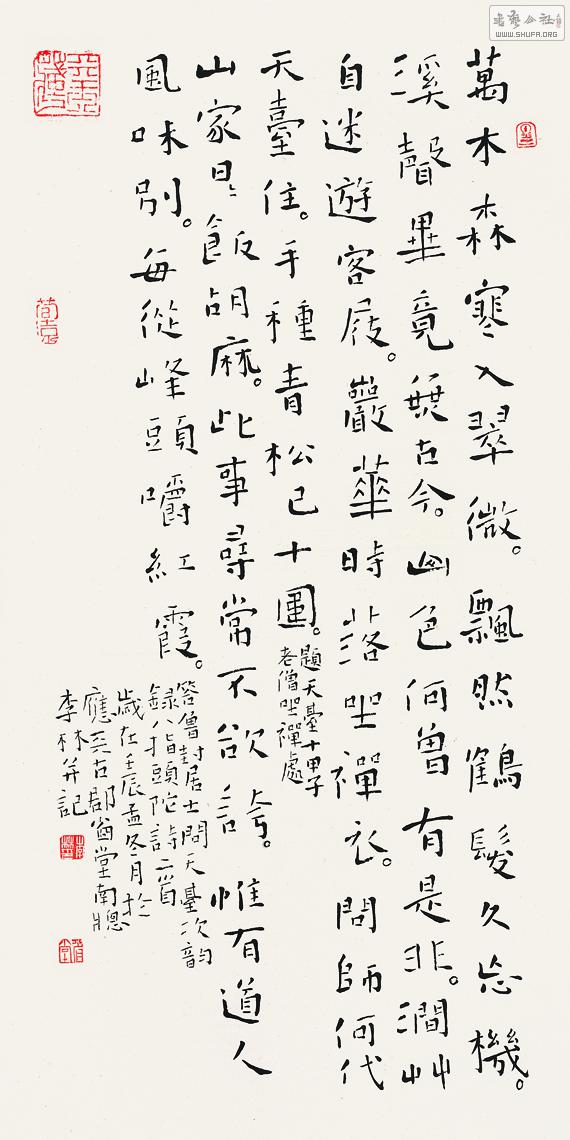 萬木森寒入翠微。飄然鶴髮久忘機。
溪聲畢竟無古今。山色何曾有是非。澗艸
自迷遊客屐。巖華時落坐禪衣。問師何代
天臺住。手種青松已十圍。
題天臺十甲子
老僧坐禪處
山家日〻飯胡麻。此事尋常不欲誇。惟有道人
風味別。每從峰頭嚼紅霞。
答僧封居士問天臺次韵
録八指頭陀詩二首
歲在壬辰孟冬月於
應天古郡省堂南牕
李林并記
WWW.SHUFA.ORG